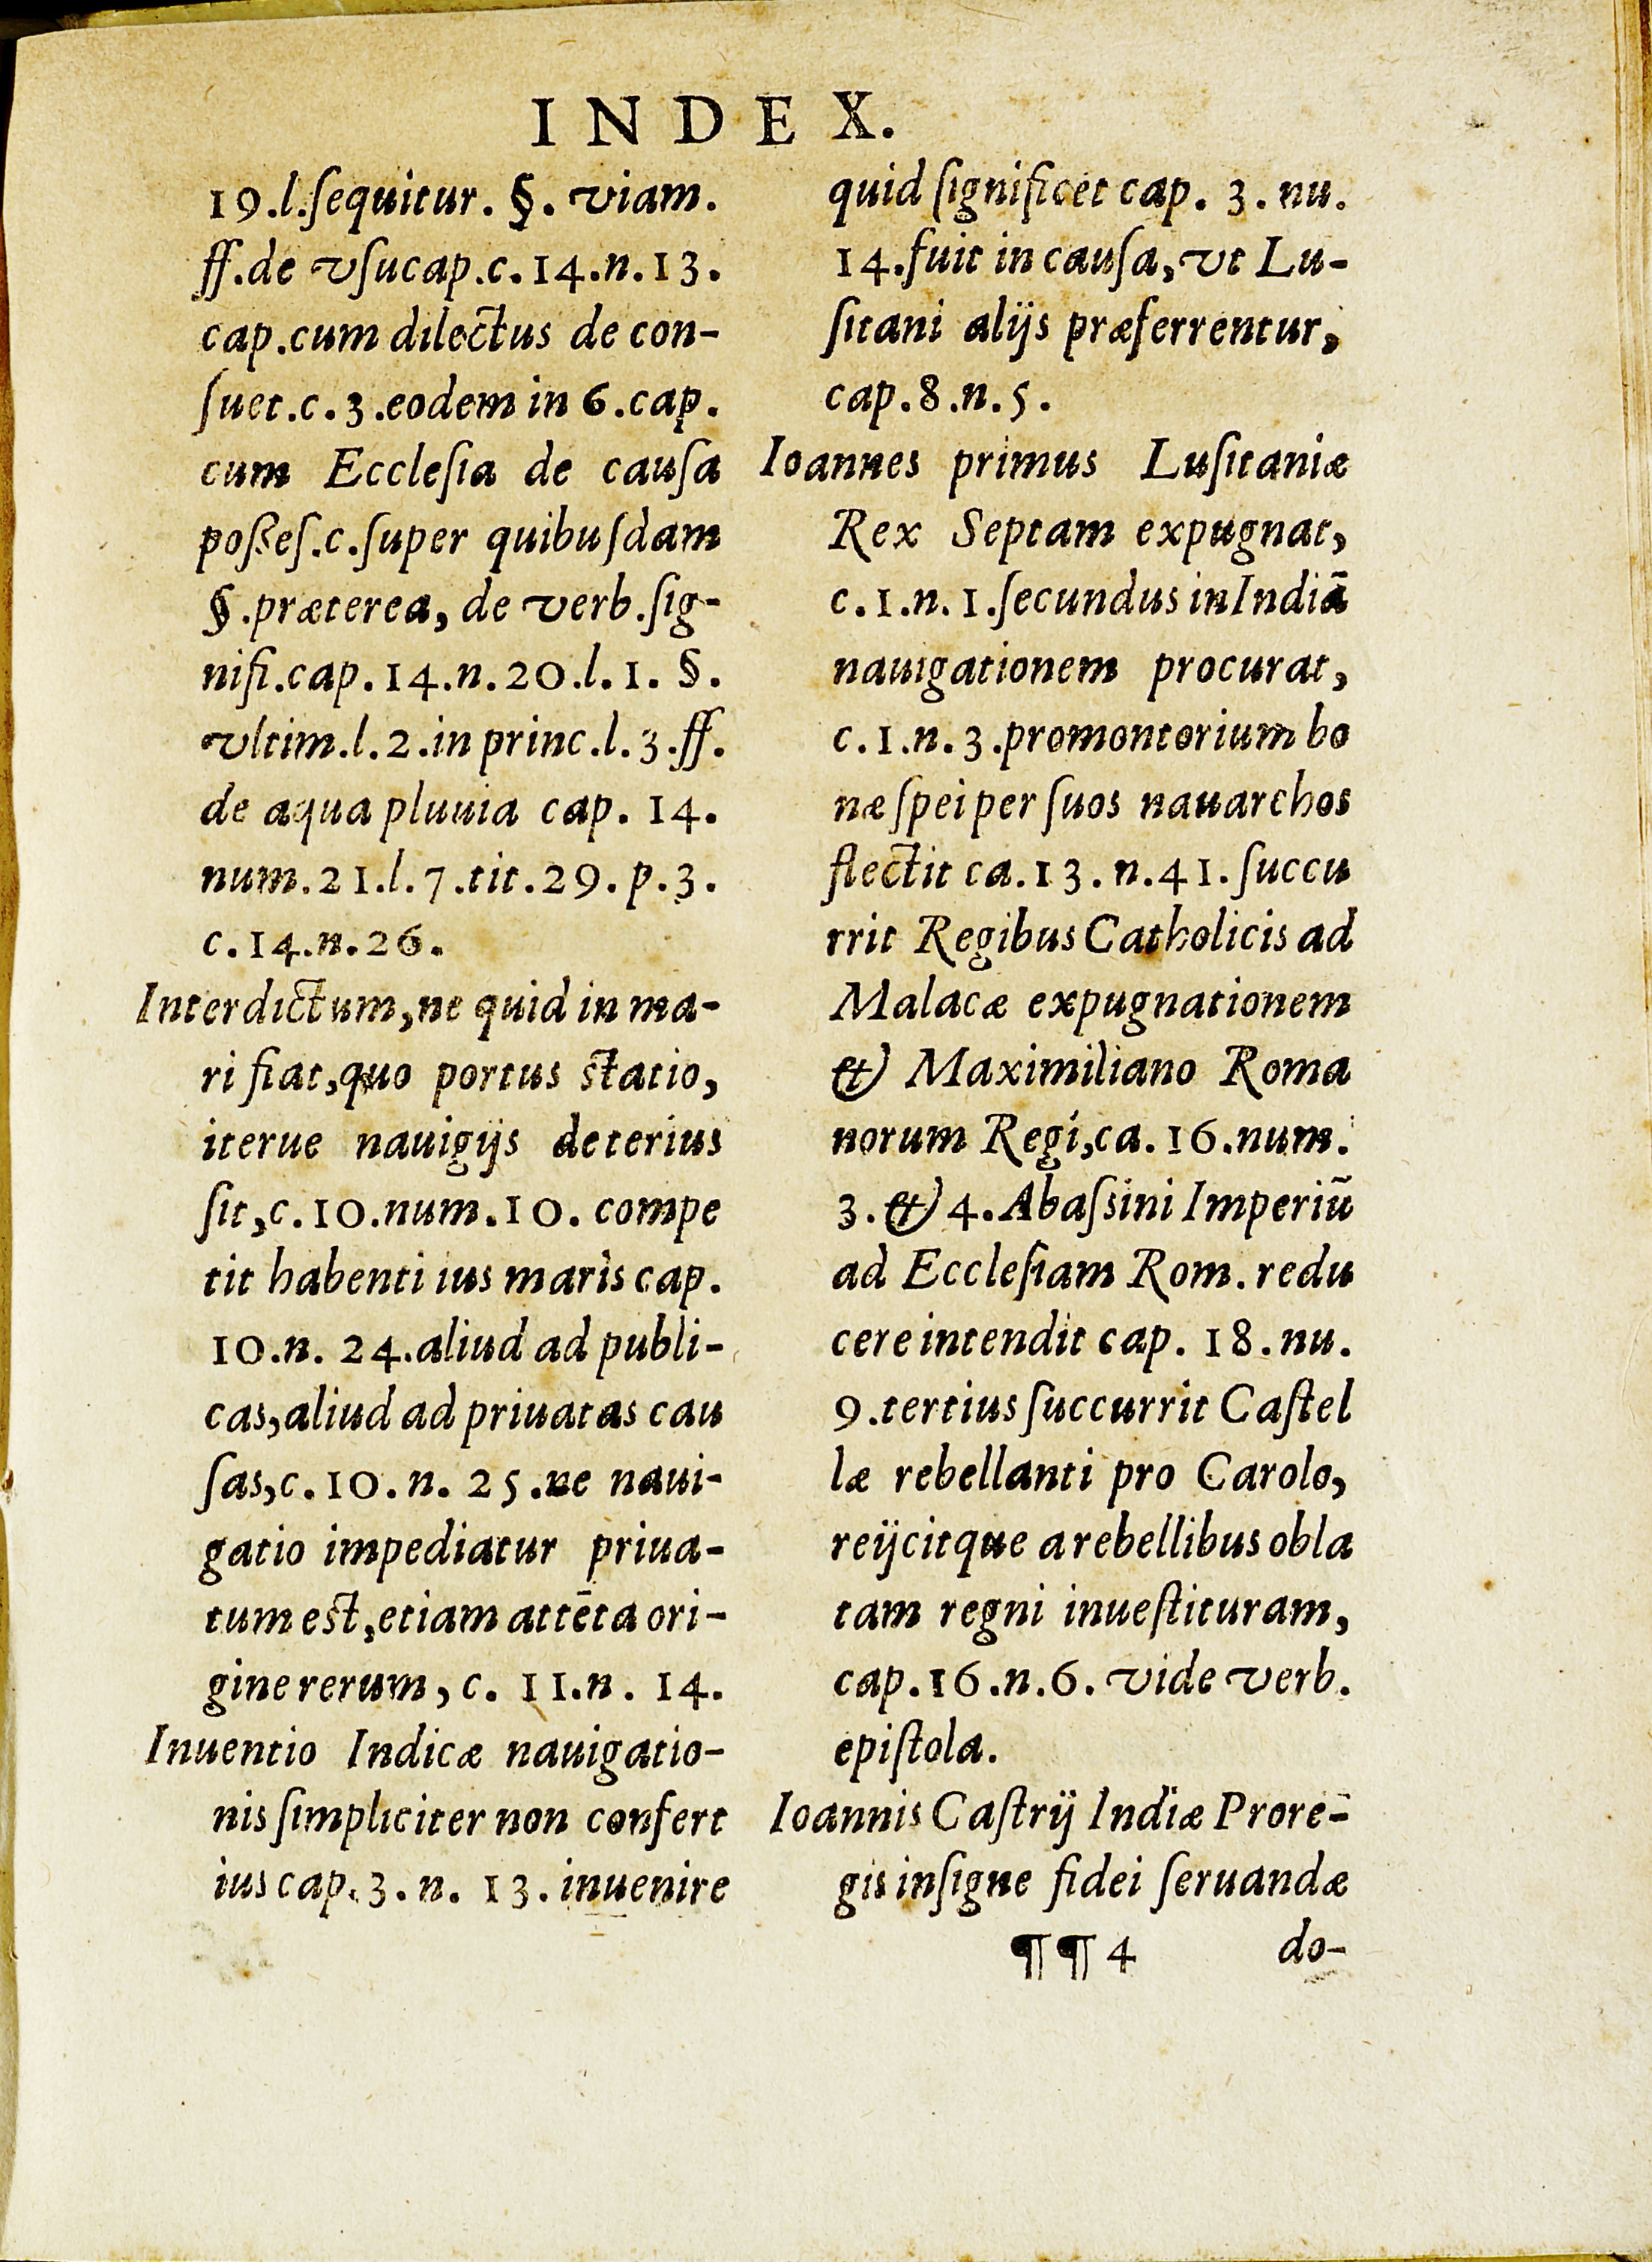 INDEX.
19.l.ſequitur. §. viam.
ff.de vſucap.c.14.n.13.
cap.cum dilectus de con-
ſuet.c.3.eodem in 6.cap.
cum Eccleſia de cauſa
poſſeſ.c.ſuper quibuſdam
§.præterea, de verb.ſig-
nifi.cap.14.n.20.l.1. §.
vltim.l.2.in princ.l.3.ff.
de aqua pluuia cap. 14.
num.21.l.7.tit.29.p.3.
c.14.n.26.
Interdictum,ne quid in ma-
ri fiat,quo portus statio,
iterue nauigijs deterius
ſit,c.10.num.10. compe
tit habenti ius maris cap.
10.n. 24.aliud ad publi-
cas,aliud ad priuatas cau
ſas,c.10.n. 25.ne naui-
gatio impediatur priua-
tum est,etiam attēta ori-
gine rerum, c. 11.n. 14.
Inuentio Indicæ nauigatio-
nis ſimpliciter non confert
ius cap.3.n. 13. inuenire
quid ſignificet cap. 3. nu.
14.fuit in cauſa,vt Lu-
ſitani alijs præferrentur,
cap.8.n.5.
Ioannes primus Luſitaniæ
Rex Septam expugnat,
c.1.n.1.ſecundus in Indiā
nauigationem procurat,
c.1.n.3.promontorium bo
næ ſpei per ſuos nauarchos
flectit ca.13.n.41.ſuccu
rrit Regibus Catholicis ad
Malacæ expugnationem
& Maximiliano Roma
norum Regi,ca.16.num.
3.& 4.Abaſsini Imperiū
ad Eccleſiam Rom. redu
cere intendit cap. 18.nu.
9.tertius ſuccurrit Caſtel
læ rebellanti pro Carolo,
reijcitque a rebellibus obla
tam regni inueſtituram,
cap.16.n.6. vide verb.
epiſtola.
Ioannis Caſtrij Indiæ Prore-
gis inſigne fidei ſeruandæ
¶¶4 do-